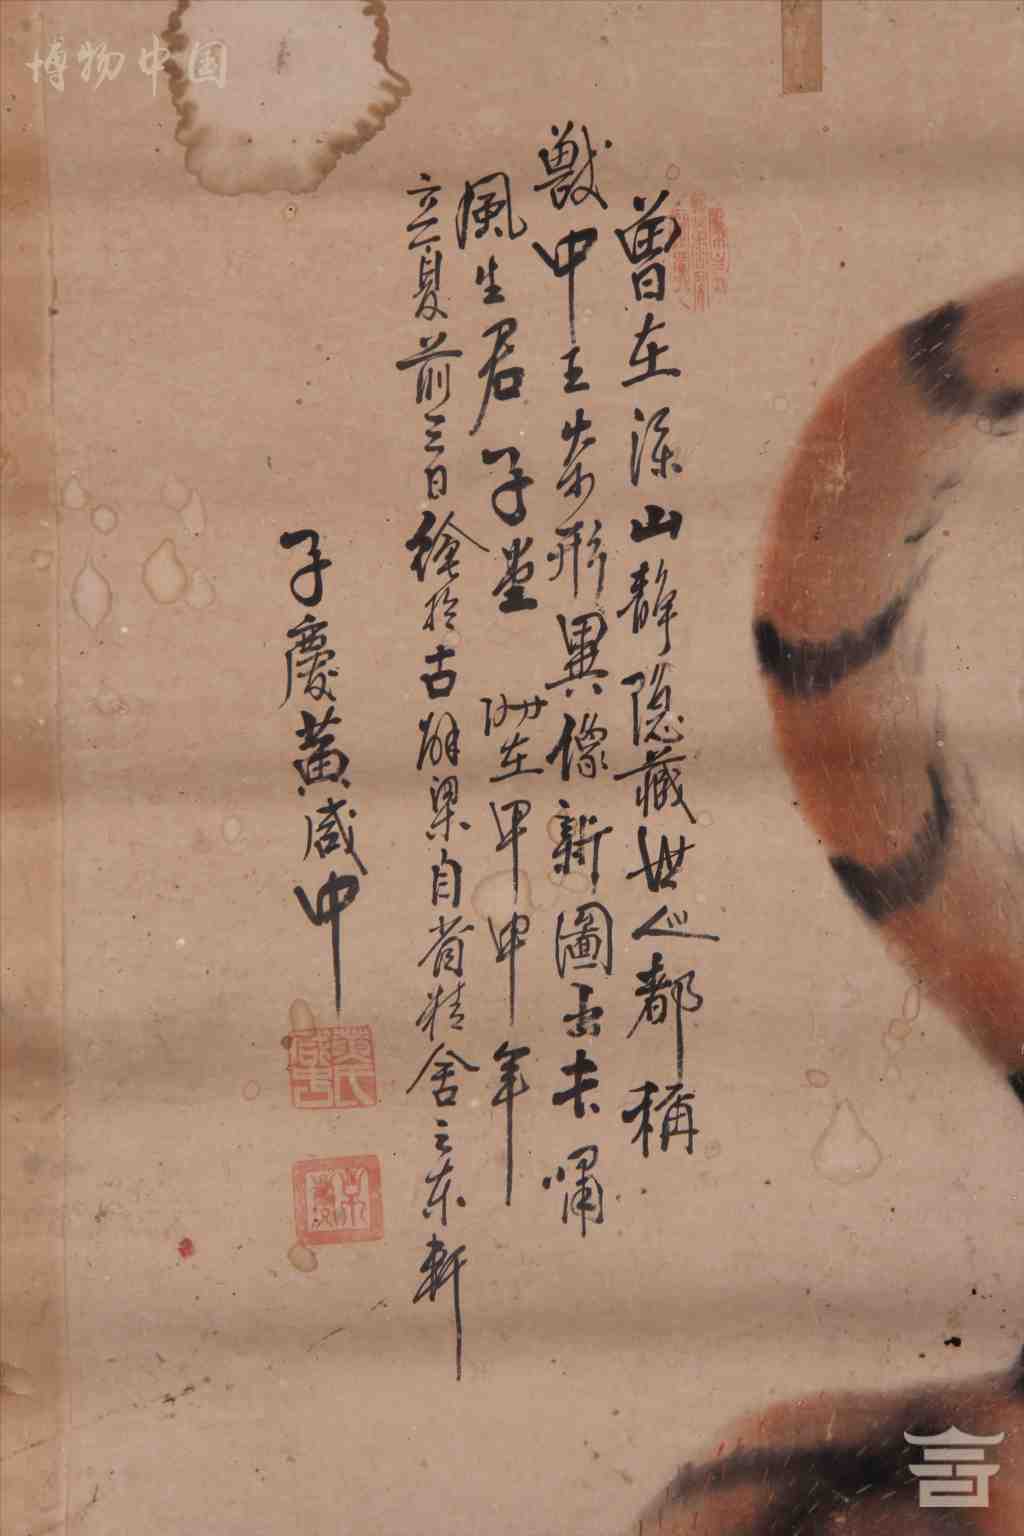 曾在深山靜隱藏世人都稱
獸中王柴形異像新圖出長嘯
風生君子堂 時在甲申年
立夏前三日繪於古解梁自省精舍之东軒
子慶黃咸中
博物中国